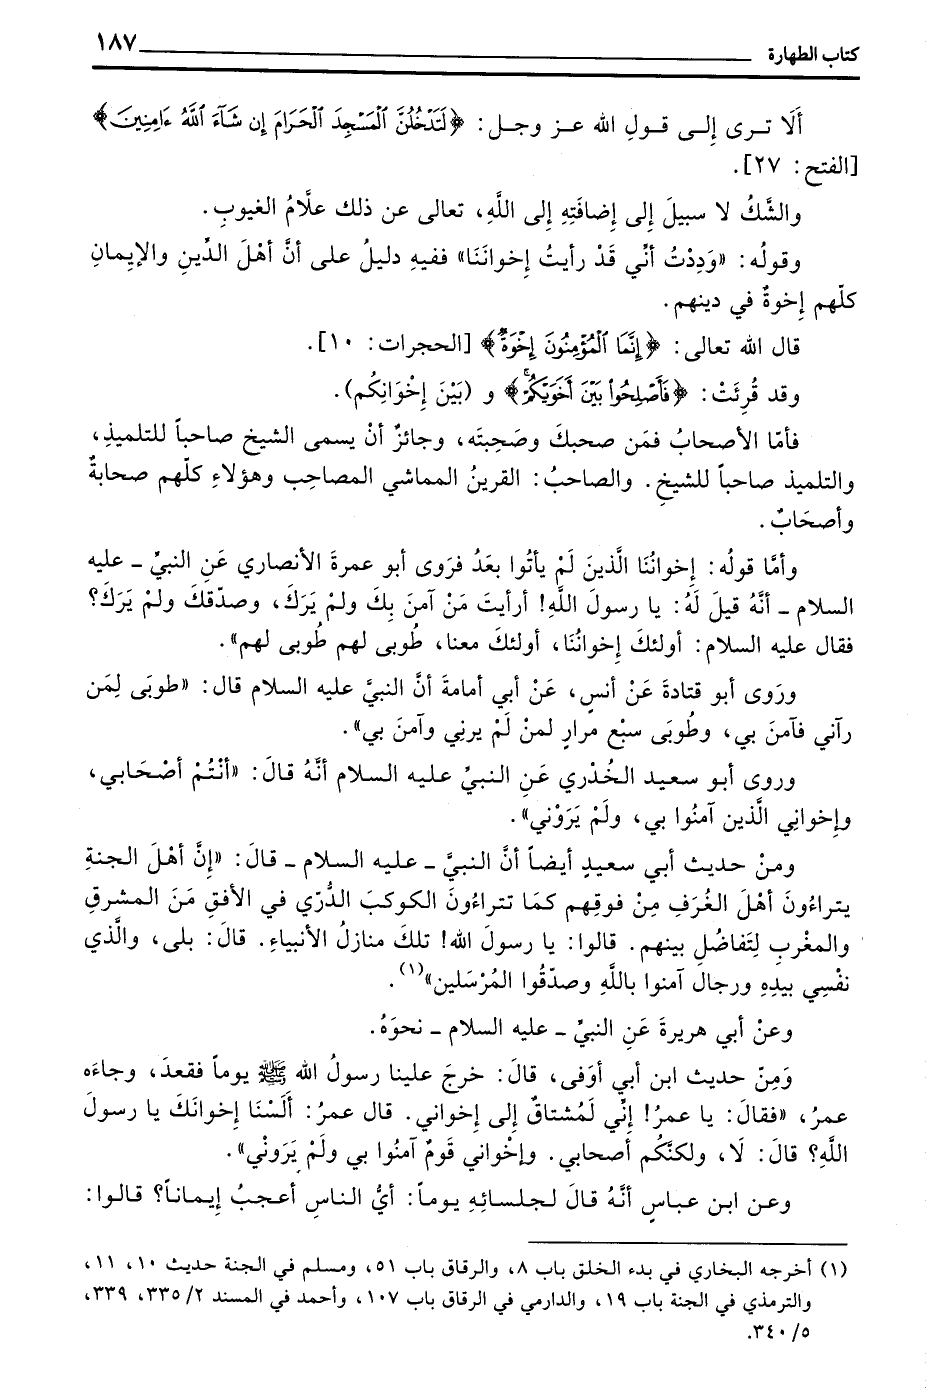 كتاب الطهارة ١٨٧
أَلَا تـرى إِلـى قـولِ الله عـز وجـل: ﴿لَتَدْخُلُنَّ ٱلْمَسْجِدَ ٱلْحَرَامَ إِن شَآءَ ٱللَّهُ ءَامِنِينَ﴾
[الفتح: ٢٧].
والشَّكُ لا سبيلَ إلى إضافَتِهِ إلى اللَّهِ، تعالى عن ذلك علَّامُ الغيوبِ.
وقولُه: «وَدِدْتُ أنِّي قَدْ رأيتُ إخوانَنَا» ففيهِ دليلُ على أنَّ أهْلَ الدِّينِ والإيمانِ
كلّهم إخوةٌ في دينهم.
قال الله تعالى: ﴿إِنَّمَا ٱلْمُؤْمِنُونَ إِخْوَةٌ﴾ [الحجرات: ١٠].
وقد قُرِئَتْ: ﴿فَأَصْلِحُواْ بَيْنَ أَخَوَيْكُمْ﴾ و (بَيْنَ إخْوَانِكُم).
فأمّا الأصحابُ فمَن صحبكَ وصَحِبتَه، وجائزٌ أنْ يسمى الشيخ صاحباً للتلميذِ،
والتلميذ صاحباً للشيخِ. والصاحبُ: القرينُ المماشي المصاحِب وهؤلاءِ كلّهم صحابةٌ
وأصحَابٌ.
وأمَّا قولُه: إخوانُنَا الَّذينَ لَمْ يأتُوا بعَدُ فرَوى أبو عمرةَ الأنصاري عَنِ النبيِّ - عليه
السلام - أنَّهُ قيلَ لَهُ: يا رسولَ اللَّهِ! أرأيتَ مَنْ آمنَ بِكَ ولمْ يَرَكَ، وصدّقكَ ولمْ يَرَكَ؟
فقال عليه السلام: أولئكَ إخوانُنَا، أولئكَ معنا، طُوبى لهم طُوبى لهم».
ورَوى أبو قتادةَ عَنْ أنسٍ، عَنْ أبي أمامةَ أنَّ النبيَّ عليه السلام قال: «طوبَى لِمَن
رآني فآمنَ بي، وطُوبَى سبْع مرارٍ لمنْ لَمْ يرني وآمنَ بي».
وروى أبو سعيد الخُدْري عَنِ النبيِّ عليه السلام أنَّهُ قالَ: «أنْتُمْ أصْحَابي،
وإخوانِي الَّذين آمنُوا بي، ولَمْ يَرَوْني».
ومنْ حديث أبي سعيدٍ أيضاً أنَّ النبيَّ - عليه السلام - قالَ: «إنَّ أهْلَ الجنةِ
يتراءُونَ أهْلَ الغُرَفِ مِنْ فوقِهم كمَا تتراءُونَ الكوكبَ الدُّرّي في الأفقِ مَنَ المشرقِ
والمغْربِ لِتَفاضُلِ بينهم. قالوا: يا رسولَ الله! تلكَ منازلُ الأنبياءِ. قالَ: بلى، والَّذي
نفْسِي بيدِهِ ورجال آمنوا باللَّهِ وصدّقُوا المُرْسَلين»(١).
وعنْ أبي هريرةَ عَنِ النبيِّ - عليه السلام - نحوَهُ.
وَمِنّ حديث ابن أبي أوَفى، قالَ: خرجَ علينا رسولُ الله ﷺ يوماً فقعدَ، وجاءَه
عمرُ، «فقالَ: يا عمرُ! إنِّي لَمُشتاقٌ إلى إخواني. قال عمرُ: أَلَسْنَا إخوانَكَ يا رسولَ
اللَّهِ؟ قالَ: لَا، ولكنَّكُم أصحابي. وإخْواني قَومٌ آمنُوا بي ولَمْ يَرَوني».
وعـن ابـن عبـاسٍ أنَّـهُ قـالَ لـجلسـائِهِ يـومـاً: أيُّ النـاسِ أعـجـبُ إيـمـانـاً؟ قـالـوا:
(١) أخرجه البخاري في بدء الخلق باب ٨، والرقاق باب ٥١، ومسلم في الجنة حديث ١٠، ١١،
والترمذي في الجنة باب ١٩، والدارمي في الرقاق باب ١٠٧، وأحمد في المسند ٢/ ٣٣٥، ٣٣٩،
٥/ ٣٤٠.